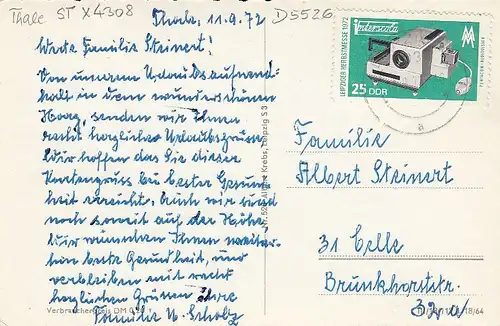 Thale ST X4308
Thale, 11.9.72
D5526
Werte Familie Steinert!
Von unserem Urlaubsaufent-
halt in dem wunderschönen
Harz, senden wir Ihnen
recht herzliche Urlaubsgrüsse
Wir hoffen das Sie dieser
Kartengruss bei bester Gesund-
heit erreicht, auch wir sind
noch soweit auf der Höhe
Wir wünschen Ihnen weiter-
hin beste Gesundheit, und
verbleiben mit recht
herzlichen Grüssen Ihre
Familie Scholz
Verbraucherpreis DM
Krebs, Leipzig S 3
LEIPZIGER HERBSTMESSE 1972
MM
25 DDR
Familie
Albert Steinert
31 Celle
Brunkhorststr.
18/64